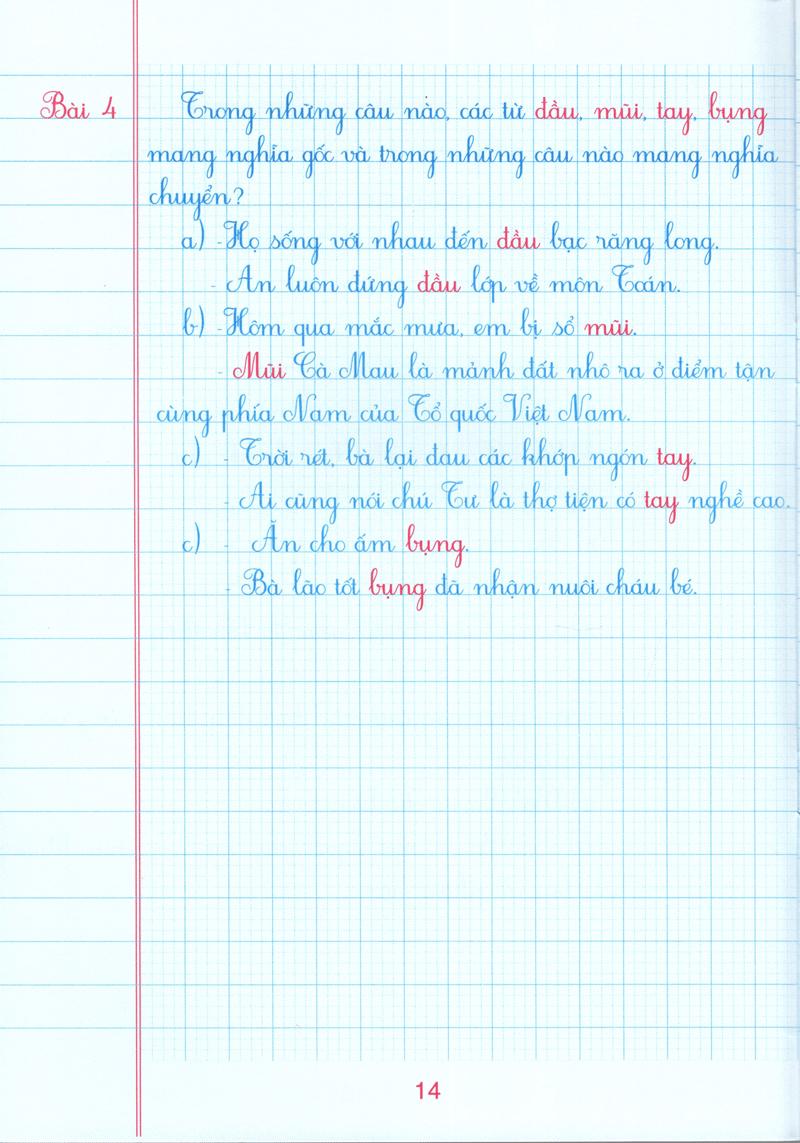 Bài 4 Trong những câu nào, các từ đầu, mũi, tay, bụng
mang nghĩa gốc và trong những câu nào mang nghĩa
chuyển?
a) - Họ sống với nhau đến đầu bạc răng long.
- An luôn đứng đầu lớp về môn Toán.
b) - Hôm qua mắc mưa, em bị sổ mũi.
- Mũi Cà Mau là mảnh đất nhô ra ở điểm tận
cùng phía Nam của Tổ quốc Việt Nam.
c) - Trời rét, bà lại đau các khớp ngón tay.
- Ai cũng nói chú Tư là thợ tiện có tay nghề cao.
c) - Ăn cho ấm bụng.
- Bà lão tốt bụng đã nhận nuôi cháu bé.
14